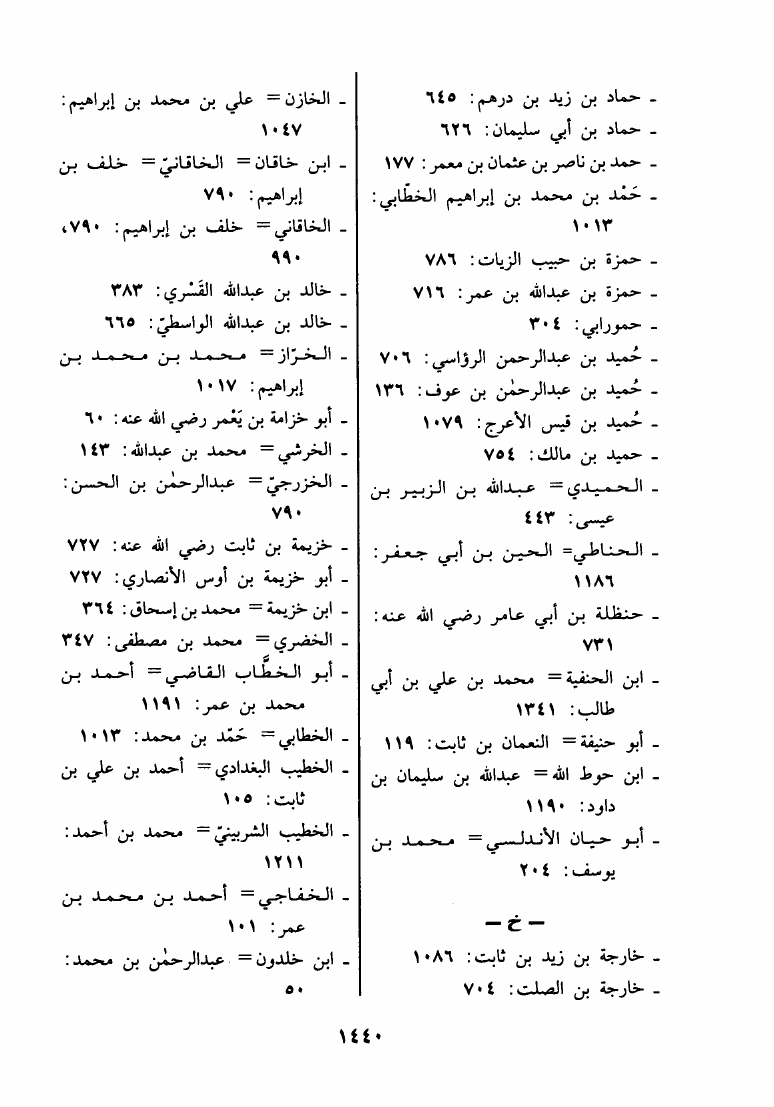 - حماد بن زيد بن درهم: ٦٤٥
- حماد بن أبي سليمان: ٦٢٦
- حمد بن ناصر بن عثمان بن معمر: ١٧٧
- حَمْد بن محمد بن إبراهيم الخطّابي:
١٠١٣
- حمزة بن حبيب الزيات: ٧٨٦
- حمزة بن عبدالله بن عمر: ٧١٦
- حمورابي: ٣٠٤
- حُميد بن عبدالرحمن الرؤاسي: ٧٠٦
- حُميد بن عبدالرحمٰن بن عوف: ١٣٦
- حُميد بن قيس الأعرج: ١٠٧٩
- حميد بن مالك: ٧٥٤
- الحميدي = عبدالله بن الزبير بن
عيسى: ٤٤٣
- الحناطي= الحين بن أبي جعفر:
١١٨٦
- حنظلة بن أبي عامر رضي الله عنه:
٧٣١
- ابن الحنفية = محمد بن علي بن أبي
طالب: ١٣٤١
- أبو حنيفة = النعمان بن ثابت: ١١٩
- ابن حوط الله = عبدالله بن سليمان بن
داود: ١١٩٠
- أبو حيان الأندلسي = محمد بن
يوسف: ٢٠٤
- خ -
- خارجة بن زيد بن ثابت: ١٠٨٦
- خارجة بن الصلت: ٧٠٤
- الخازن = علي بن محمد بن إبراهيم:
١٠٤٧
- ابن خاقان = الخاقانيّ = خلف بن
إبراهيم: ٧٩٠
- الخاقاني = خلف بن إبراهيم: ٧٩٠،
٩٩٠
- خالد بن عبدالله القَسْري: ٣٨٣
- خالد بن عبدالله الواسطيّ: ٦٦٥
- الخرّاز = محمد بن محمد بن
إبراهيم: ١٠١٧
- أبو خزامة بن يَعْمر رضي الله عنه: ٦٠
- الخرشي = محمد بن عبدالله: ١٤٣
- الخزرجيّ = عبدالرحمٰن بن الحسن:
٧٩٠
- خزيمة بن ثابت رضي الله عنه: ٧٢٧
- أبو خزيمة بن أوس الأنصاري: ٧٢٧
- ابن خزيمة = محمد بن إسحاق: ٣٦٤
- الخضري = محمد بن مصطفى: ٣٤٧
- أبو الخطَّاب القاضي = أحمد بن
محمد بن عمر: ١١٩١
- الخطابي = حَمّد بن محمد: ١٠١٣
- الخطيب البغدادي = أحمد بن علي بن
ثابت: ١٠٥
- الخطيب الشربينيّ = محمد بن أحمد:
١٢١١
- الخفاجي = أحمد بن محمد بن
عمر: ١٠١
- ابن خلدون = عبدالرحمٰن بن محمد:
٥٠
١٤٤٠